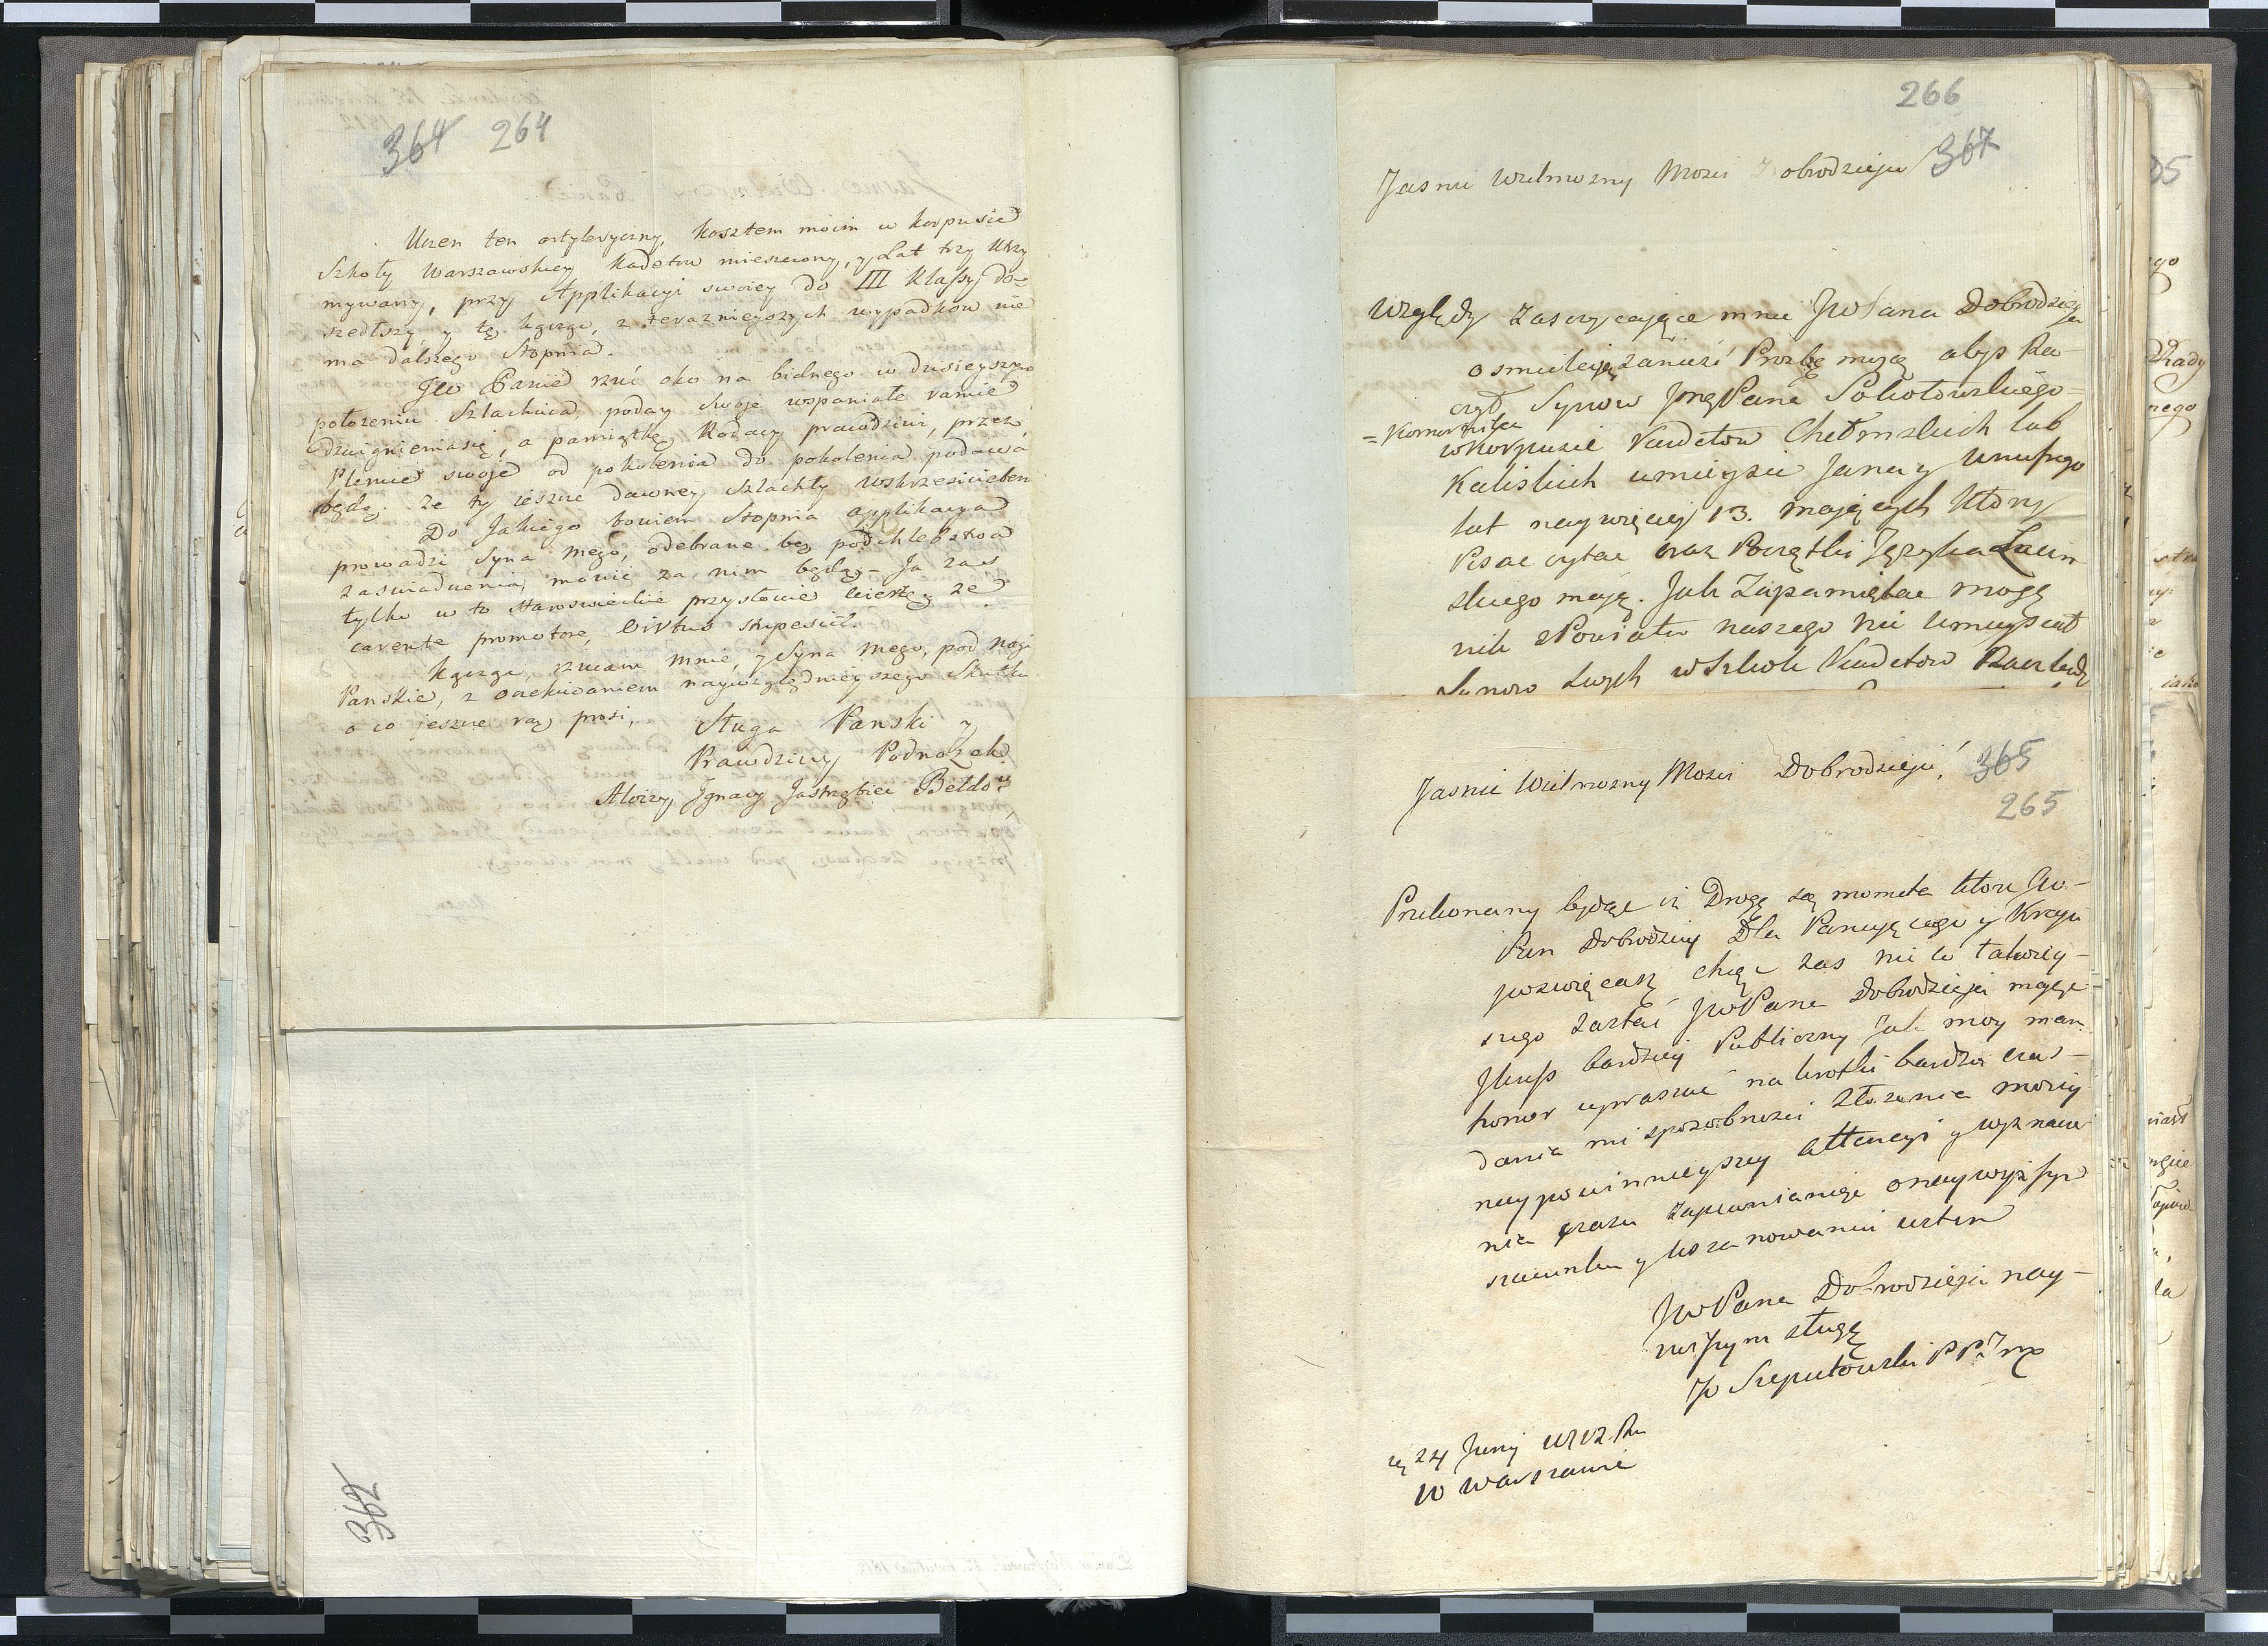 364 264
Uczen ten artyleryczny, kosztem moim w korpusie
Szkoły Warszawskiey Kadetow mieszczony, y Lat trzy utrzy
mywany, przy Applikacyi swoiey do III Klassy do=
szedłszy, y tę kończąc, z teraznieyszych wypadkow nie
ma dalszego Stopnia.
JW Panie rzuć oko na biednego w dzisieyszym
położeniu Szlachcica, poday swoje wspaniałe ramie
dzwignienia się, a pamiątkę Rodacy prawdziwi, przez
Plemie swoje od pokolenia do pokolenia podawa
będą, że ty ieszcze dawney Szlachty wskrzesicielem
Do Jakiego bowiem Stopnia applikacya
prowadzi Syna mego, odebrane bez podchlebstwa
zaswiadczenia, mowić za nim będą. Ja zas
tylko w to staroswieckie przysłowie wierzę, że
carente promotore, virtus stupescit.
Kończąc, rzucam mnie, y Syna mego, pod nogi
Panskie, z oczekiwaniem naywzględnieyszego Skutku
o co jeszcze raz prosi,
Sługa Panski y
Prawdziwy Podnożek
Aloizy Ignacy Jastrzębiec Bełdo
362
266
367
Jasnie Wielmozny Mosci Dobrodzieju
Względy Zaszczycające mnie JWPana Dobrodzie
ja
osmielają zanieść Prozbę moją abys Ra-
czył Synow Pana Sokołowskiego
= Komornika
w Korpusie Kadetow Chełmskich lub
Kaliskich umieysci Jana y Unufrego
lat naywięcey 13. mających ktory
Pisac czytac oraz Początki Języka Łacin
skiego mają. Jak Zapamiętac mogę
nik z Powiatu naszego nie umiescił
Synow swych w Szkole Kadetow Racz będz
Jasnie Wielmozny Mosci Dobrodzieju, 365
265
Przekonany będąc iż Drogę są momēta ktore JW-
Pan Dobrodziey Dla Panującego y Kraju
poswięcasz chcąc zas nie co łatwiey-
szego zastać JWPana Dobrodzieja mając
Jnteress bardziey Publiczny Jak moy mam
honor upraszać na krotki bardzo czas-
dania mi sposobnosci złożenia moiey
naypowinnieyszey attencyi y wyznawa
nia zarazu zapewniając o naywyższym
szacunku y uszanowaniu iestem
JWPana Dobrodzieja nay-
niższym sługą
Szeputowski P P
24 Junij 1812 Ru
w Warszawie